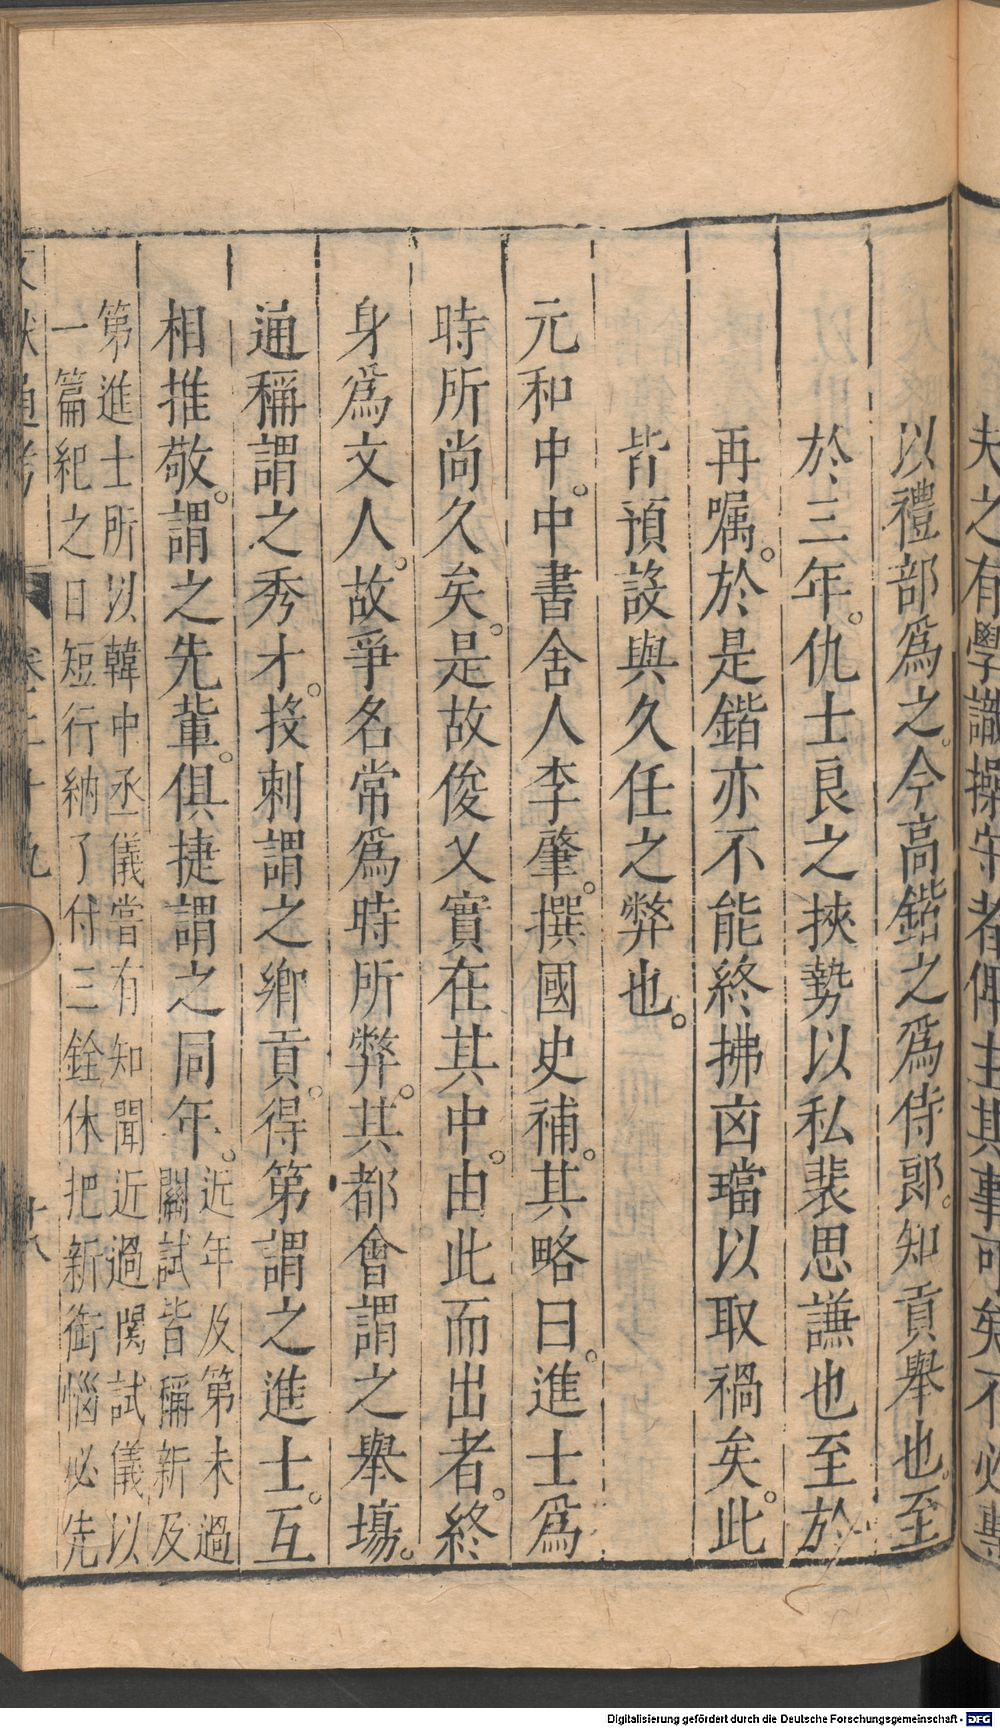 夫之有學識操守者俾主其事可矣不必專
以禮部爲之。今高鍇之爲侍郎。知貢舉也。至
於三年。仇士良之挾勢以私裴思謙也至於
再嘱。於是鍇亦不能終拂凶璫以取禍矣。此
皆預設與久任之弊也。
元和中。中書舍人李肇。撰國史補。其略曰。進士爲
時所尚久矣。是故俊乂實在其中。由此而出者。終
身爲文人。故爭名常爲時所弊。其都會謂之舉塲。
通稱謂之秀才。投刺謂之鄉貢。得第謂之進士。互
相推敬。謂之先輩。俱捷謂之同年。
近年及第未過
關試皆稱新及
第進士所以韓中丞儀當有知聞近過関試儀以
一篇紀之曰短行納了付三銓休把新銜惱必先
文獻通考 卷二十九 十八
Digitalisierung gefördert durch die Deutsche Forschungsgemeinschaft - DFG